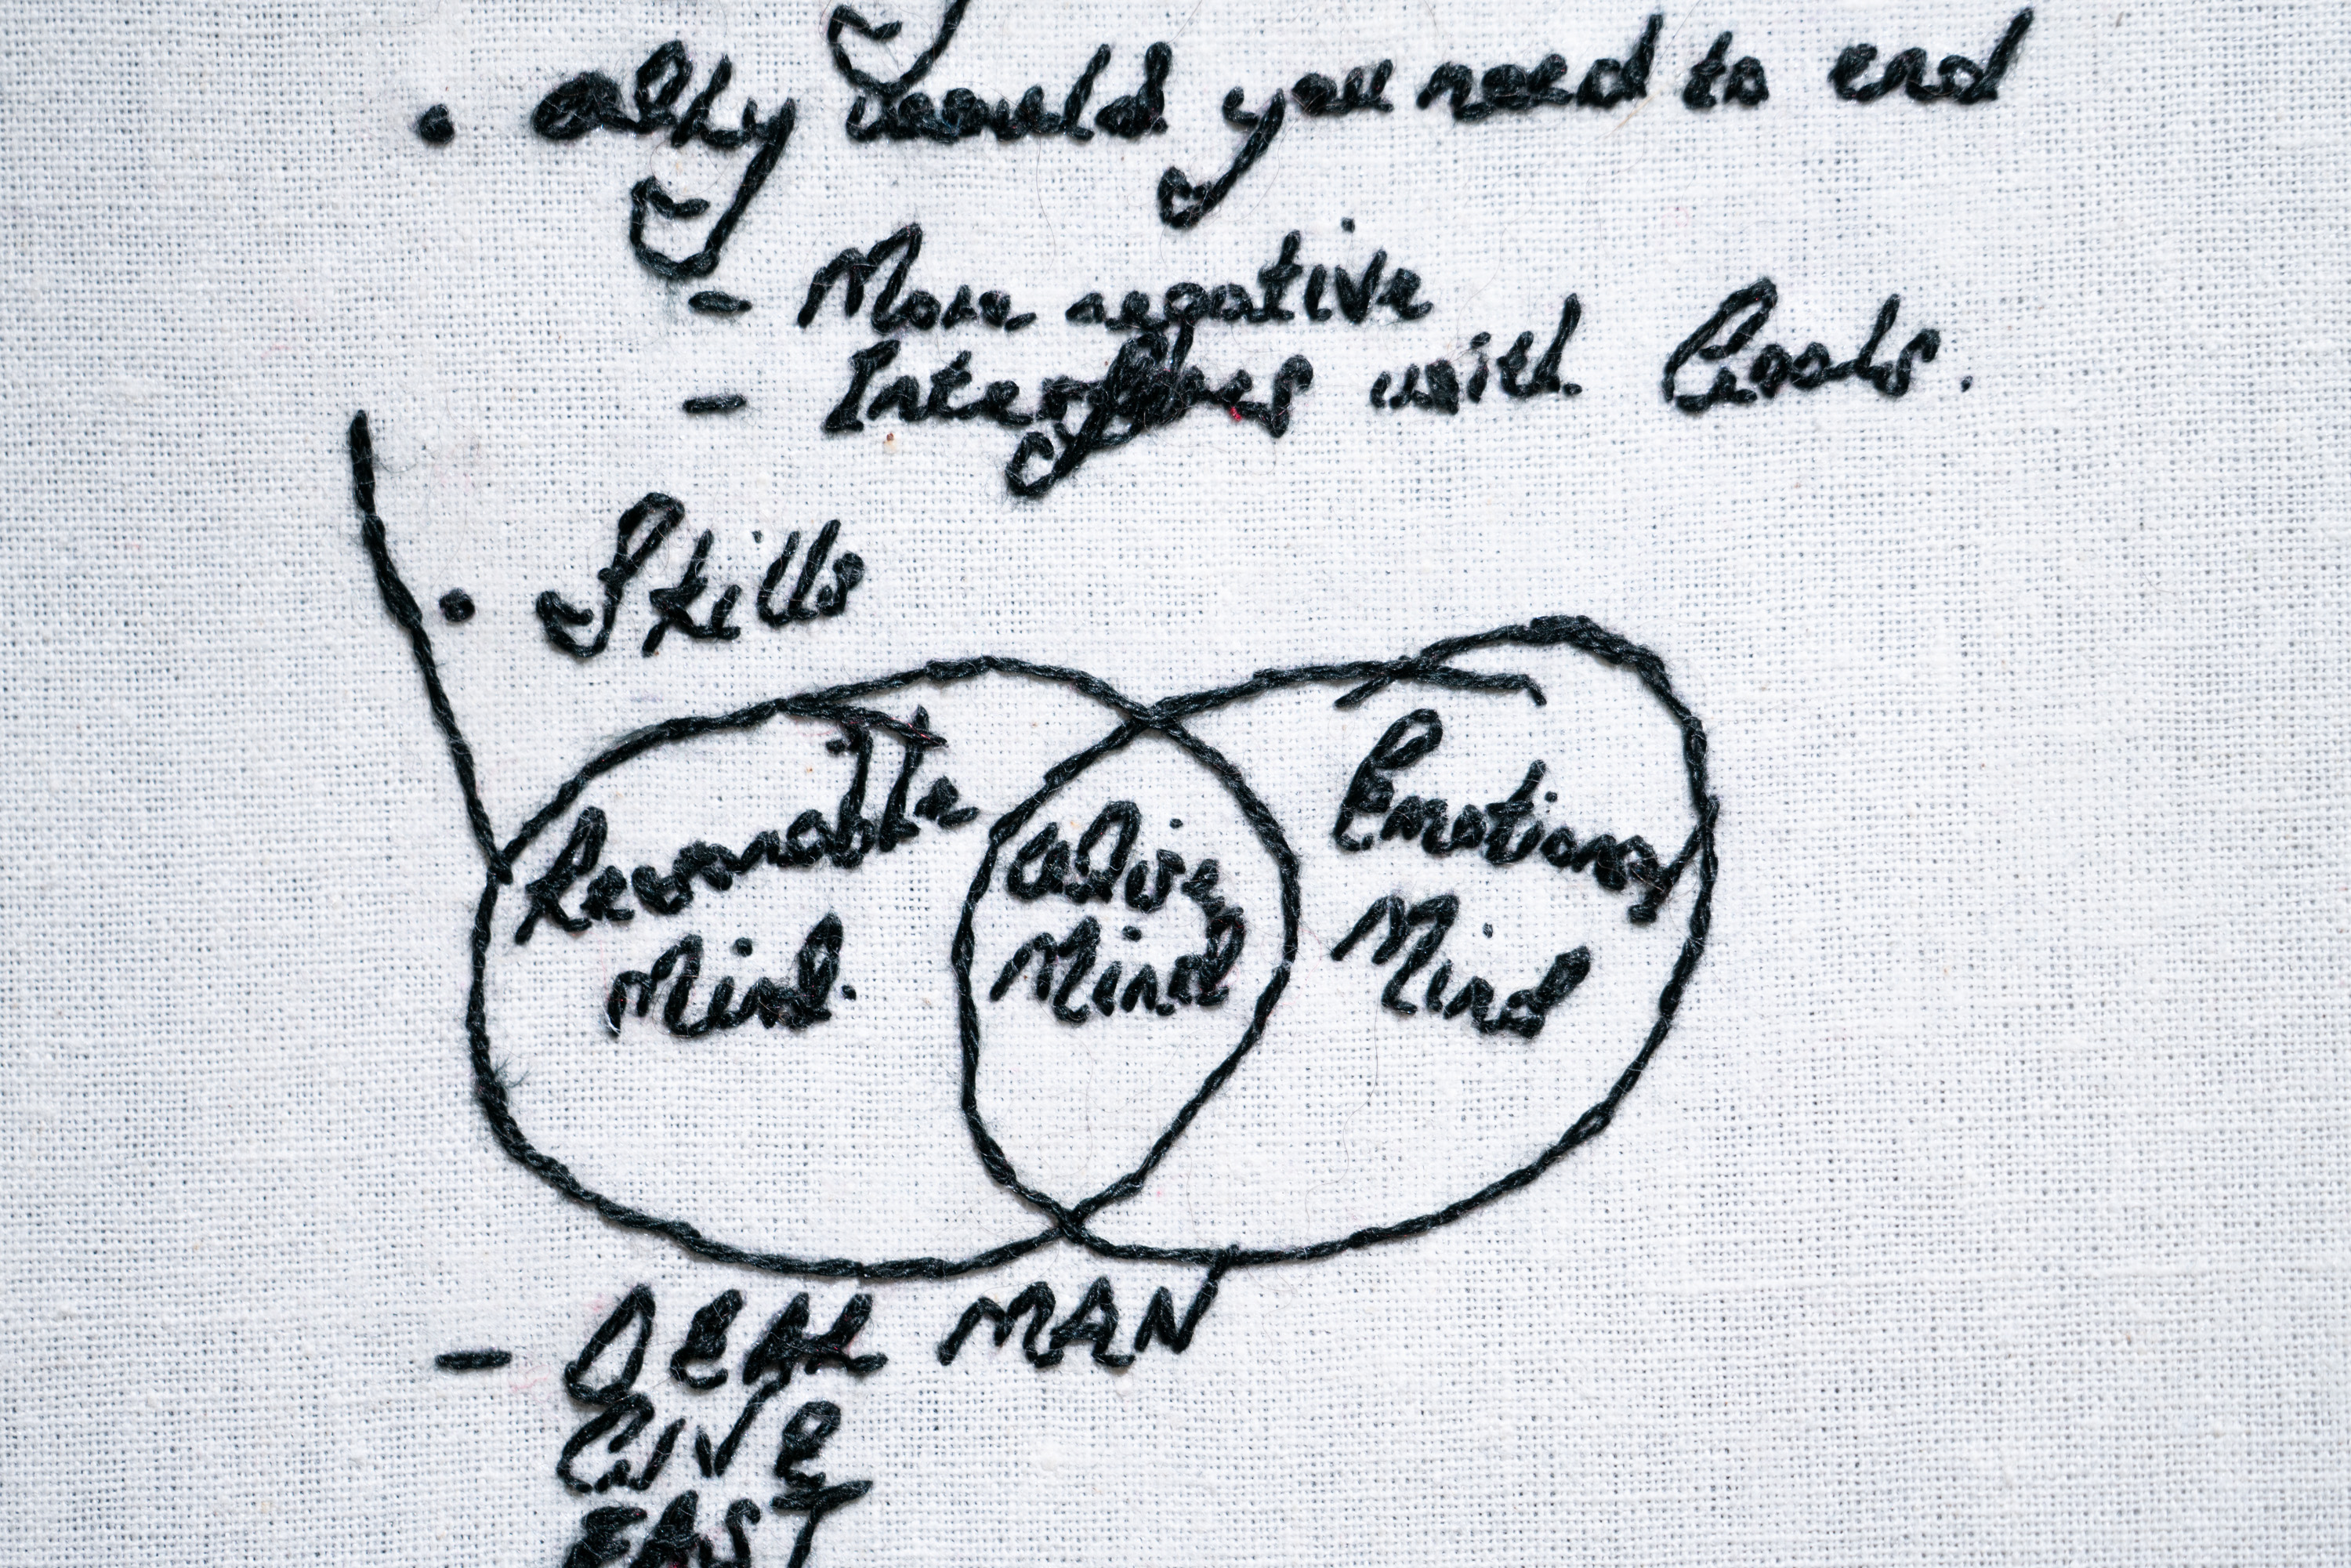 • Why would you need to end
- More negative
- Interferes with Goals.
• Skills
Reasonable
Mind.
Wise
Mind
Emotional
Mind
- DEAR MAN
GIVE
FAST